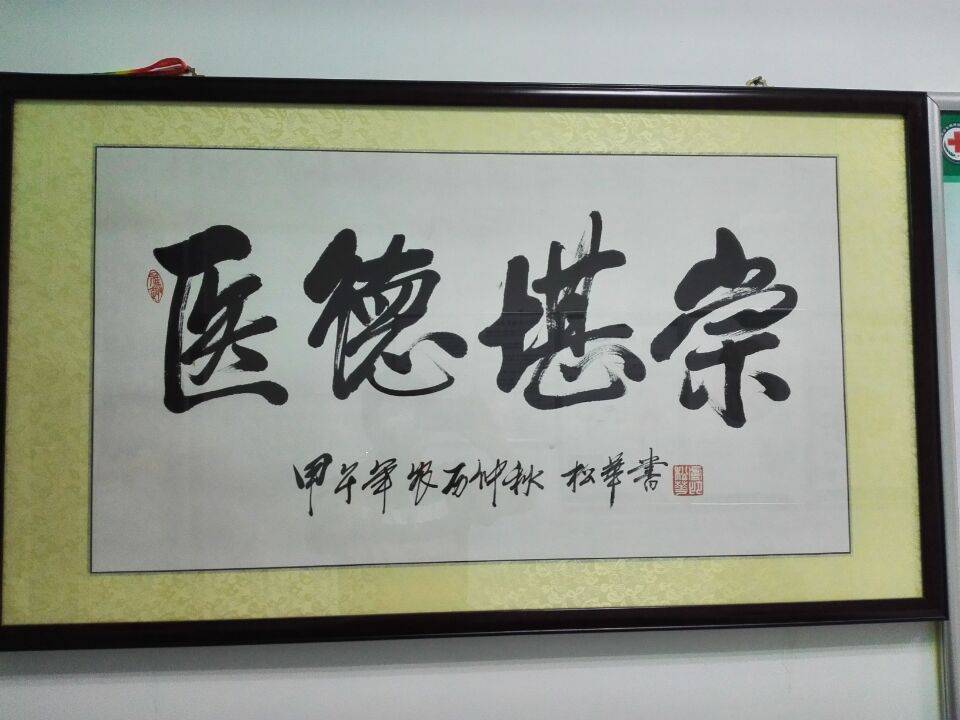 医德堪崇
甲午年农历仲秋 松华书